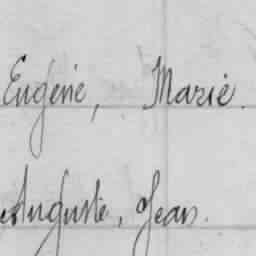 Eugène, Marie.
Auguste, Jean.